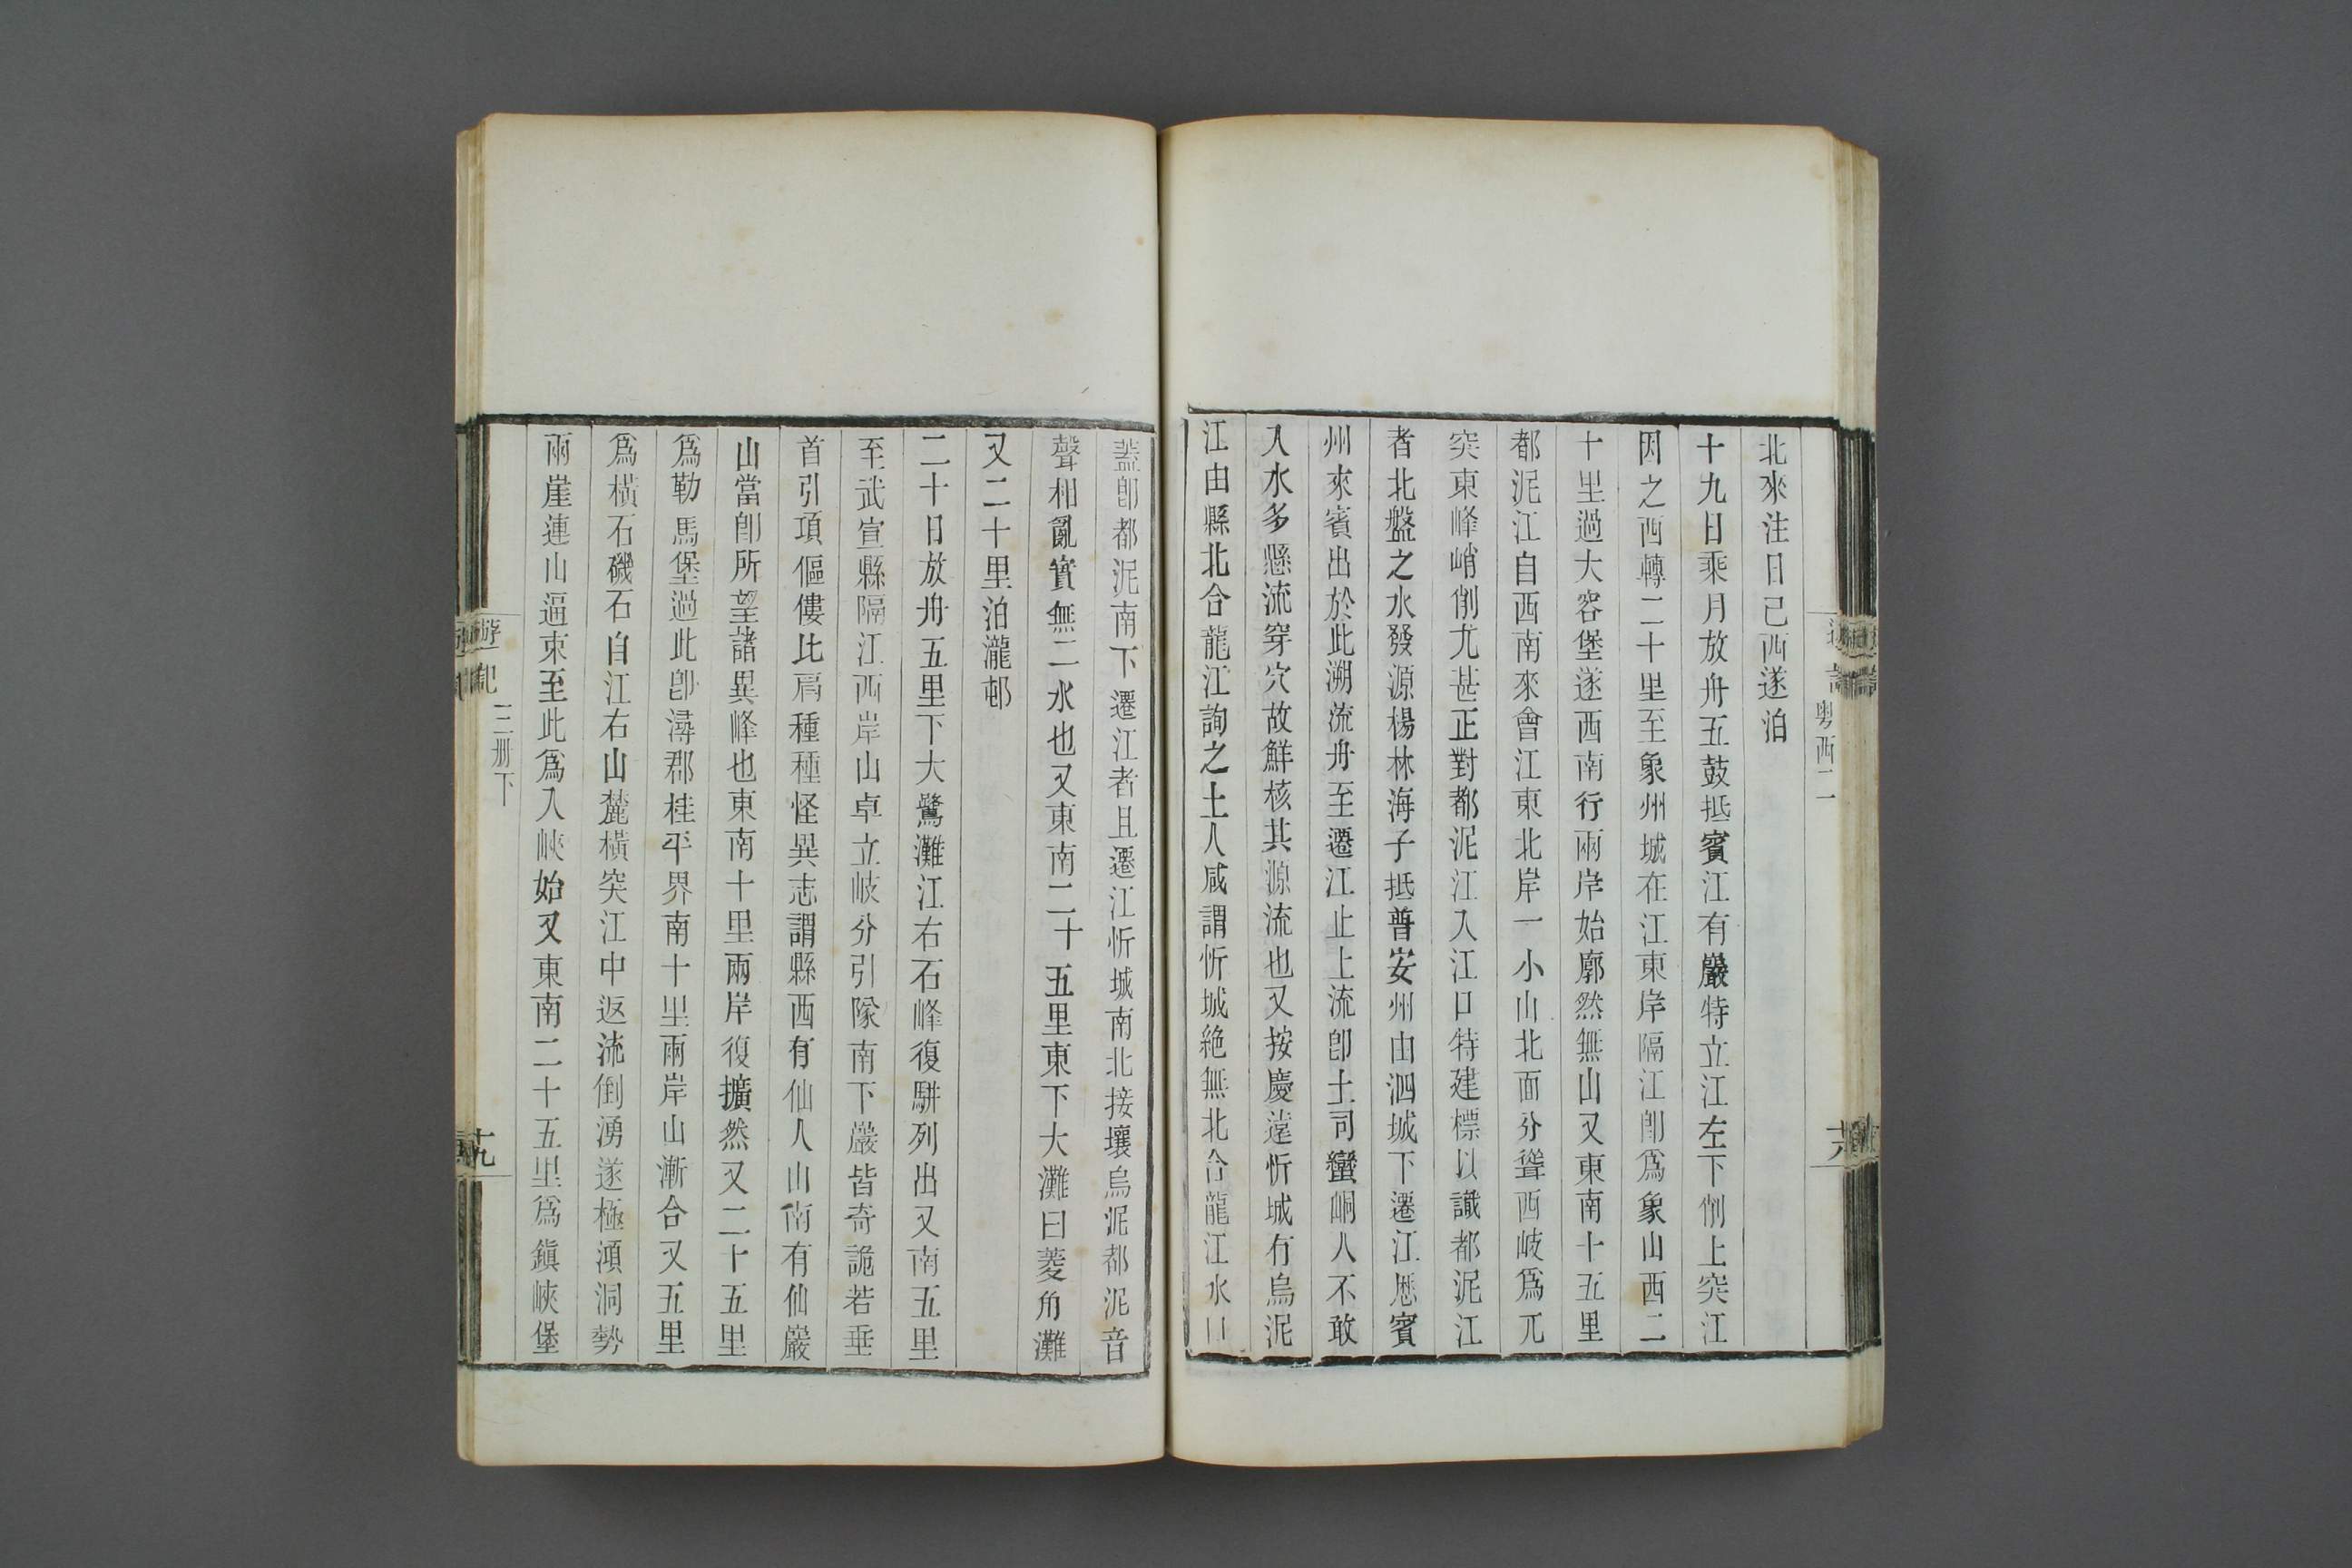 粤西二
北來注日已西遂泊
十九日乘月放舟五鼓抵賓江有巖特立江左下削上突江
因之西轉二十里至象州城在江東岸隔江卽爲象山西二
十里過大容堡遂西南行兩岸始廓然無山又東南十五里
都泥江自西南來會江東北岸一小山北面分聳西岐爲兀
突東峰峭削尤甚正對都泥江入江口特建標以識都泥江
者北盤之水發源楊林海子抵普安州由泗城下遷江歷賓
州來賓出於此溯流舟至遷江止上流卽土司蠻峒人不敢
入水多懸流穿穴故鮮核其源流也又按慶遠忻城有烏泥
江由縣北合龍江詢之土人咸謂忻城絶無北合龍江水口
蓋卽都泥南下遷江者且遷江忻城南北接壤烏泥都泥音
聲相亂實無二水也又東南二十五里東下大灘曰菱角灘
又二十里泊瀧邨
二十日放舟五里下大鷺灘江右石峰復駢列出又南五里
至武宣縣隔江西岸山卓立岐分引隊南下巖皆奇詭若垂
首引項傴僂比肩種種怪異志謂縣西有仙人山南有仙巖
山當卽所望諸異峰也東南十里兩岸復擴然又二十五里
爲勒馬堡過此卽潯郡桂平界南十里兩岸山漸合又五里
爲橫石磯石自江右山麓橫突江中返流倒湧遂極澒洞勢
兩崖連山逼束至此爲入峽始又東南二十五里爲鎭峽堡
遊記
三册下
十九